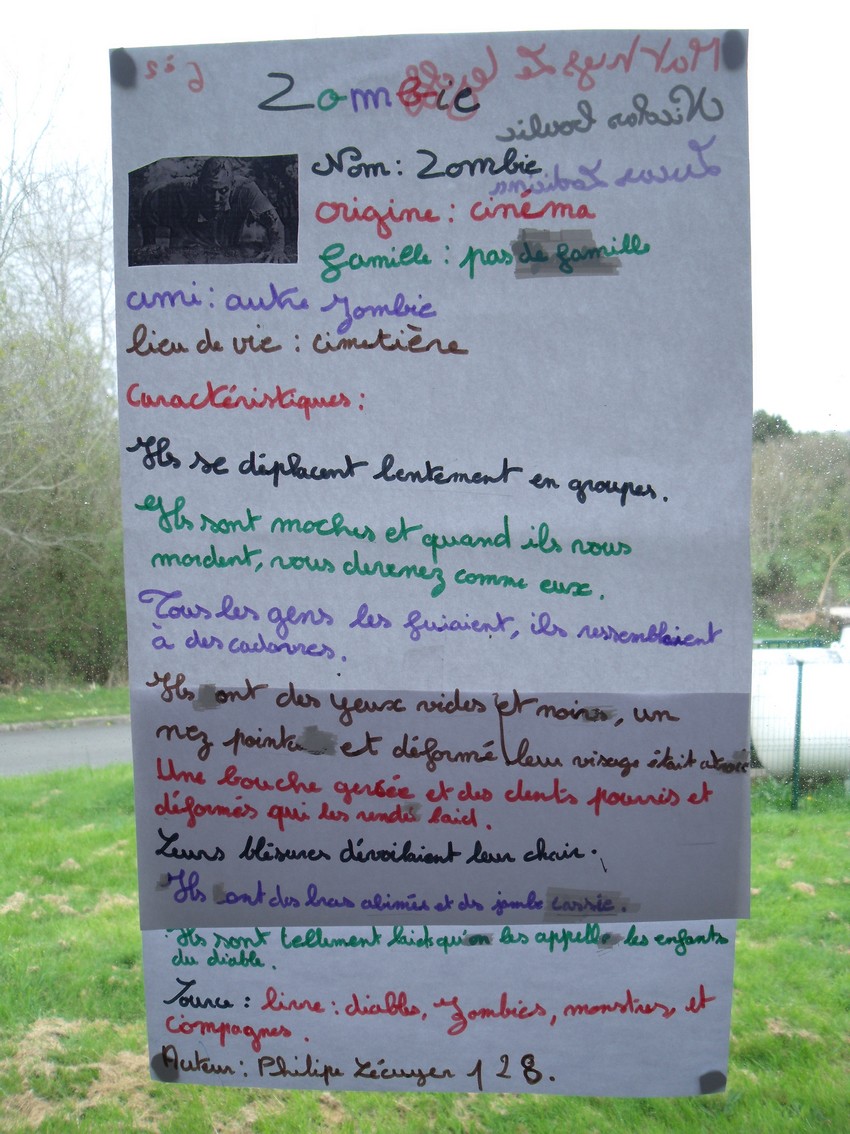 6è2
Zombie
Nom : Zombie
origine : cinéma
famille : pas de famille
ami : autre zombie
lieu de vie : cimetière
Caractéristiques :
Ils se déplacent lentement en groupes.
Ils sont moches et quand ils vous
mordent, vous devenez comme eux.
Tous les gens les fuiaient, ils ressemblaient
à des cadavres.
Ils ont des yeux vides et noirs, un
nez pointu et déformé leur visage était atroce
Une bouche gersée et des dents pourris et
déformés qui les rendes laid.
Leurs blésures dévoilaient leur chair.
Ils ont des bras abimés et des jambe cassée.
Ils sont tellement laids qu'on les appelle les enfants
du diable.
Source : livre : diables, zombies, monstres, et
compagnes.
Auteur : Philipe Lécuyer 128.